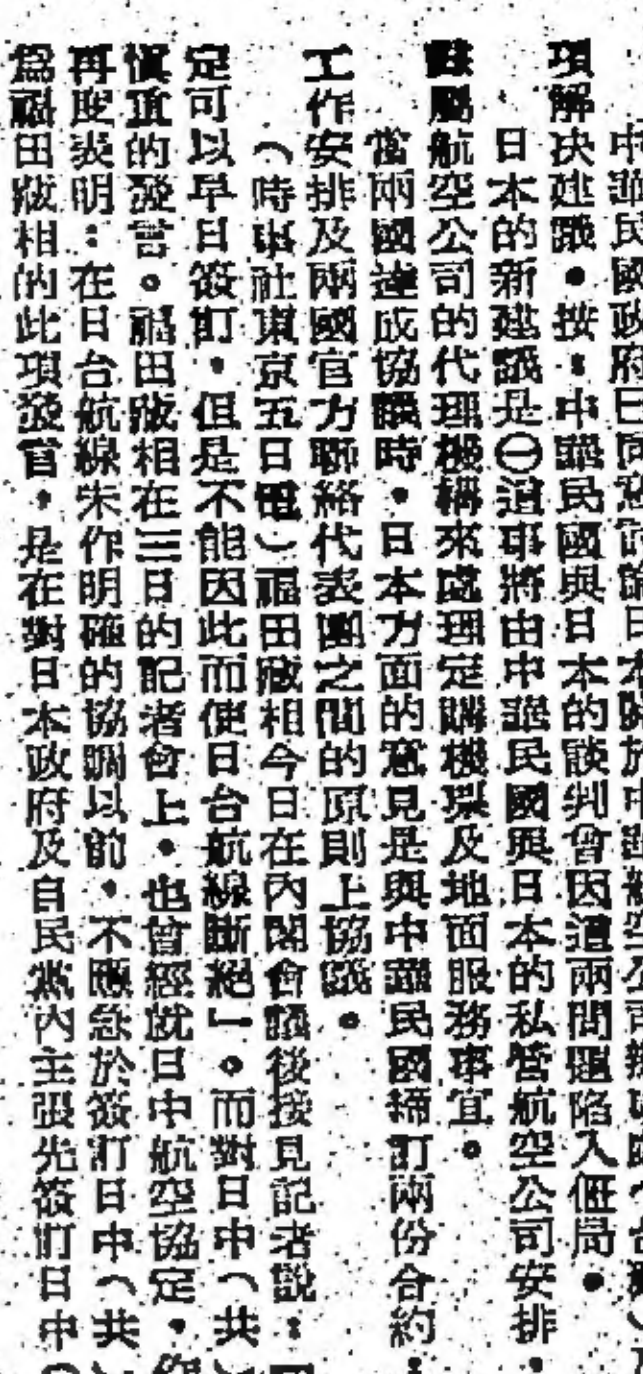 中華民國政府已同意討論日本關於中華航空公司
項解決建議。按:中華民國與日本的談判會因這兩問題陷入僵局。
日本的新建議是㊀這事將由中華民國與日本的私營航空公司安排,
隸屬航空公司的代理機構來處理定購機票及地面服務事宜。
當兩國達成協議時,日本方面的意見是與中華民國締訂兩份合約:
工作安排及兩國官方聯絡代表團之間的原則上協議。
(時事社東京五日電)福田藏相今日在內閣會議後接見記者說:
定可以早日簽訂,但是不能因此而使日台航線斷絕」。而對日中(共)
慎重的發言。福田藏相在三日的記者會上,也曾經就日中航空協定,
再度表明:在日台航線未作明確的協調以前,不應急於簽訂日中(共
為福田藏相的此項發言,是在對日本政府及自民黨內主張先簽訂日中